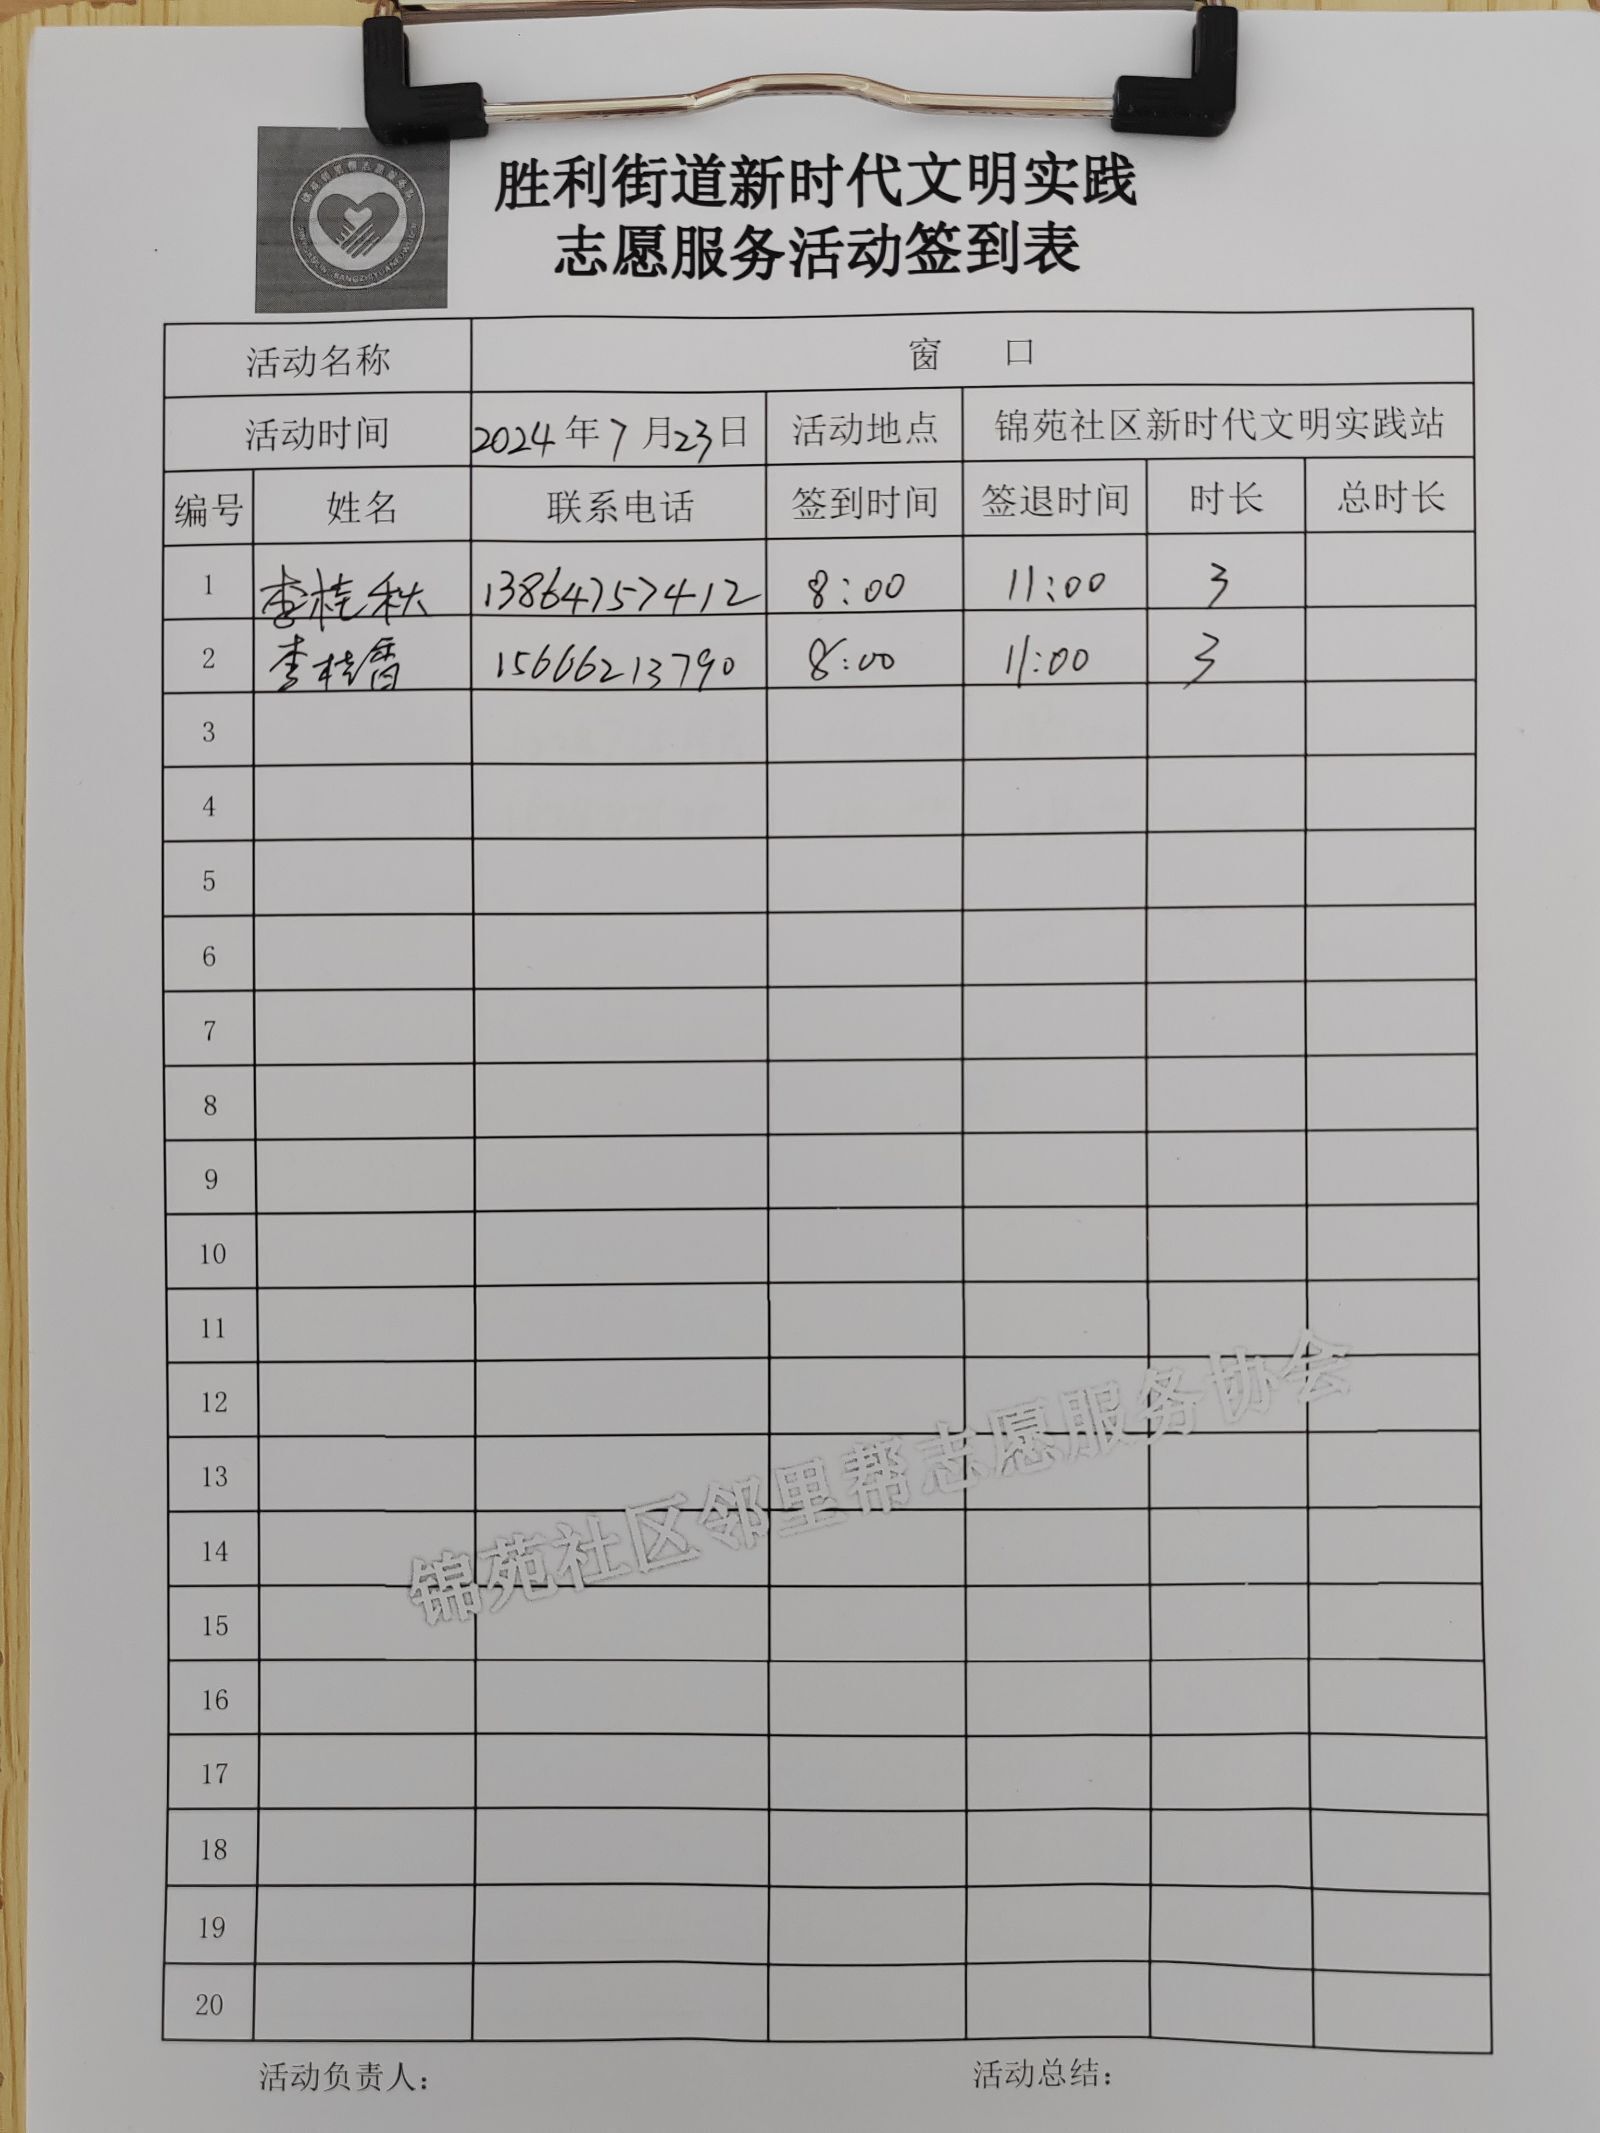 胜利街道新时代文明实践
志愿服务活动签到表
活动名称 窗 口
活动时间 2024年7月23日 活动地点 锦苑社区新时代文明实践站
编号 姓名 联系电话 签到时间 签退时间 时长 总时长
1 李桂秋 13864757412 8:00 11:00 3
2 李桂香 15666213790 8:00 11:00 3
3
4
5
6
7
8
9
10
11
12
13
14
15
16
17
18
19
20
锦苑社区邻里帮志愿服务协会
活动负责人： 活动总结：